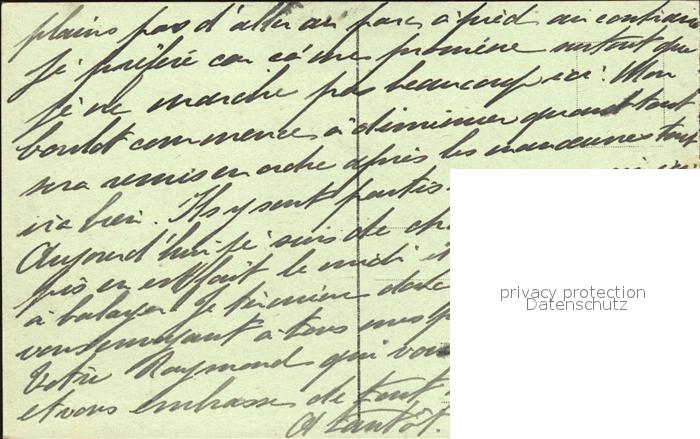 plains pas d'aller au parc à pied au contraire
je préfère car ça me promène surtout que
je ne marche pas beaucoup ici. Mon
boulot commence à diminuer quand tout
sera remis en ordre après les manœuvres tout
ira bien. Ils y sont partis
Aujourd'hui je suis de
en est fait le midi
à balayer. Je termine donc
vous envoyant à tous mes
Votre Raymond qui vous
et vous embrasse de tout
A tantôt.
privacy protection
Datenschutz